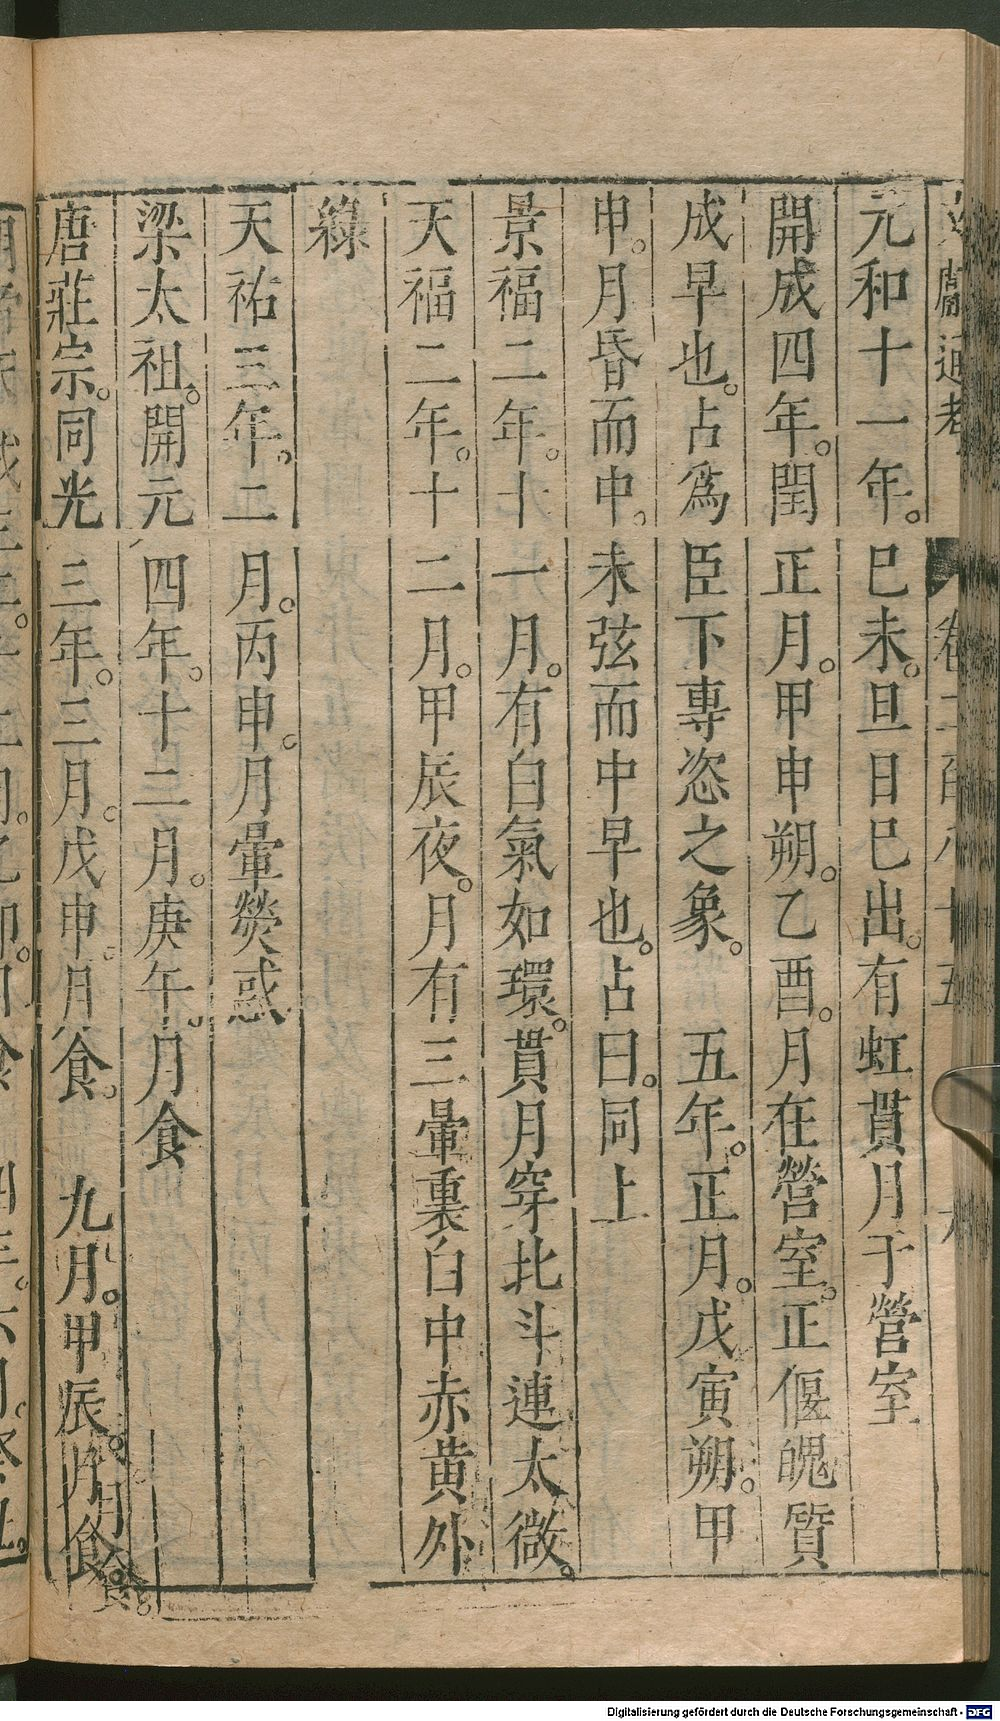 文獻通考 卷二百八十五 九
元和十一年。巳未。旦日巳出。有虹貫月于營室
開成四年。閏正月甲申朔。乙酉。月在營室。正偃魄質
成早也。占為臣下專恣之象。 五年。正月。戊寅朔。甲
申。月昏而中。未弦而中早也。占曰。同上
景福二年。十一月。有白氣如環。貫月穿北斗連太微。
天福二年。十二月。甲辰夜。月有三暈裏白中赤黄外
綠
天祐三年。二月。丙申。月暈熒惑
梁太祖。開元四年。十二月。庚午。月食
唐莊宗。同光三年。三月。戊申。月食。 九月。甲辰。月食。
Digitalisierung gefördert durch die Deutsche Forschungsgemeinschaft - DFG